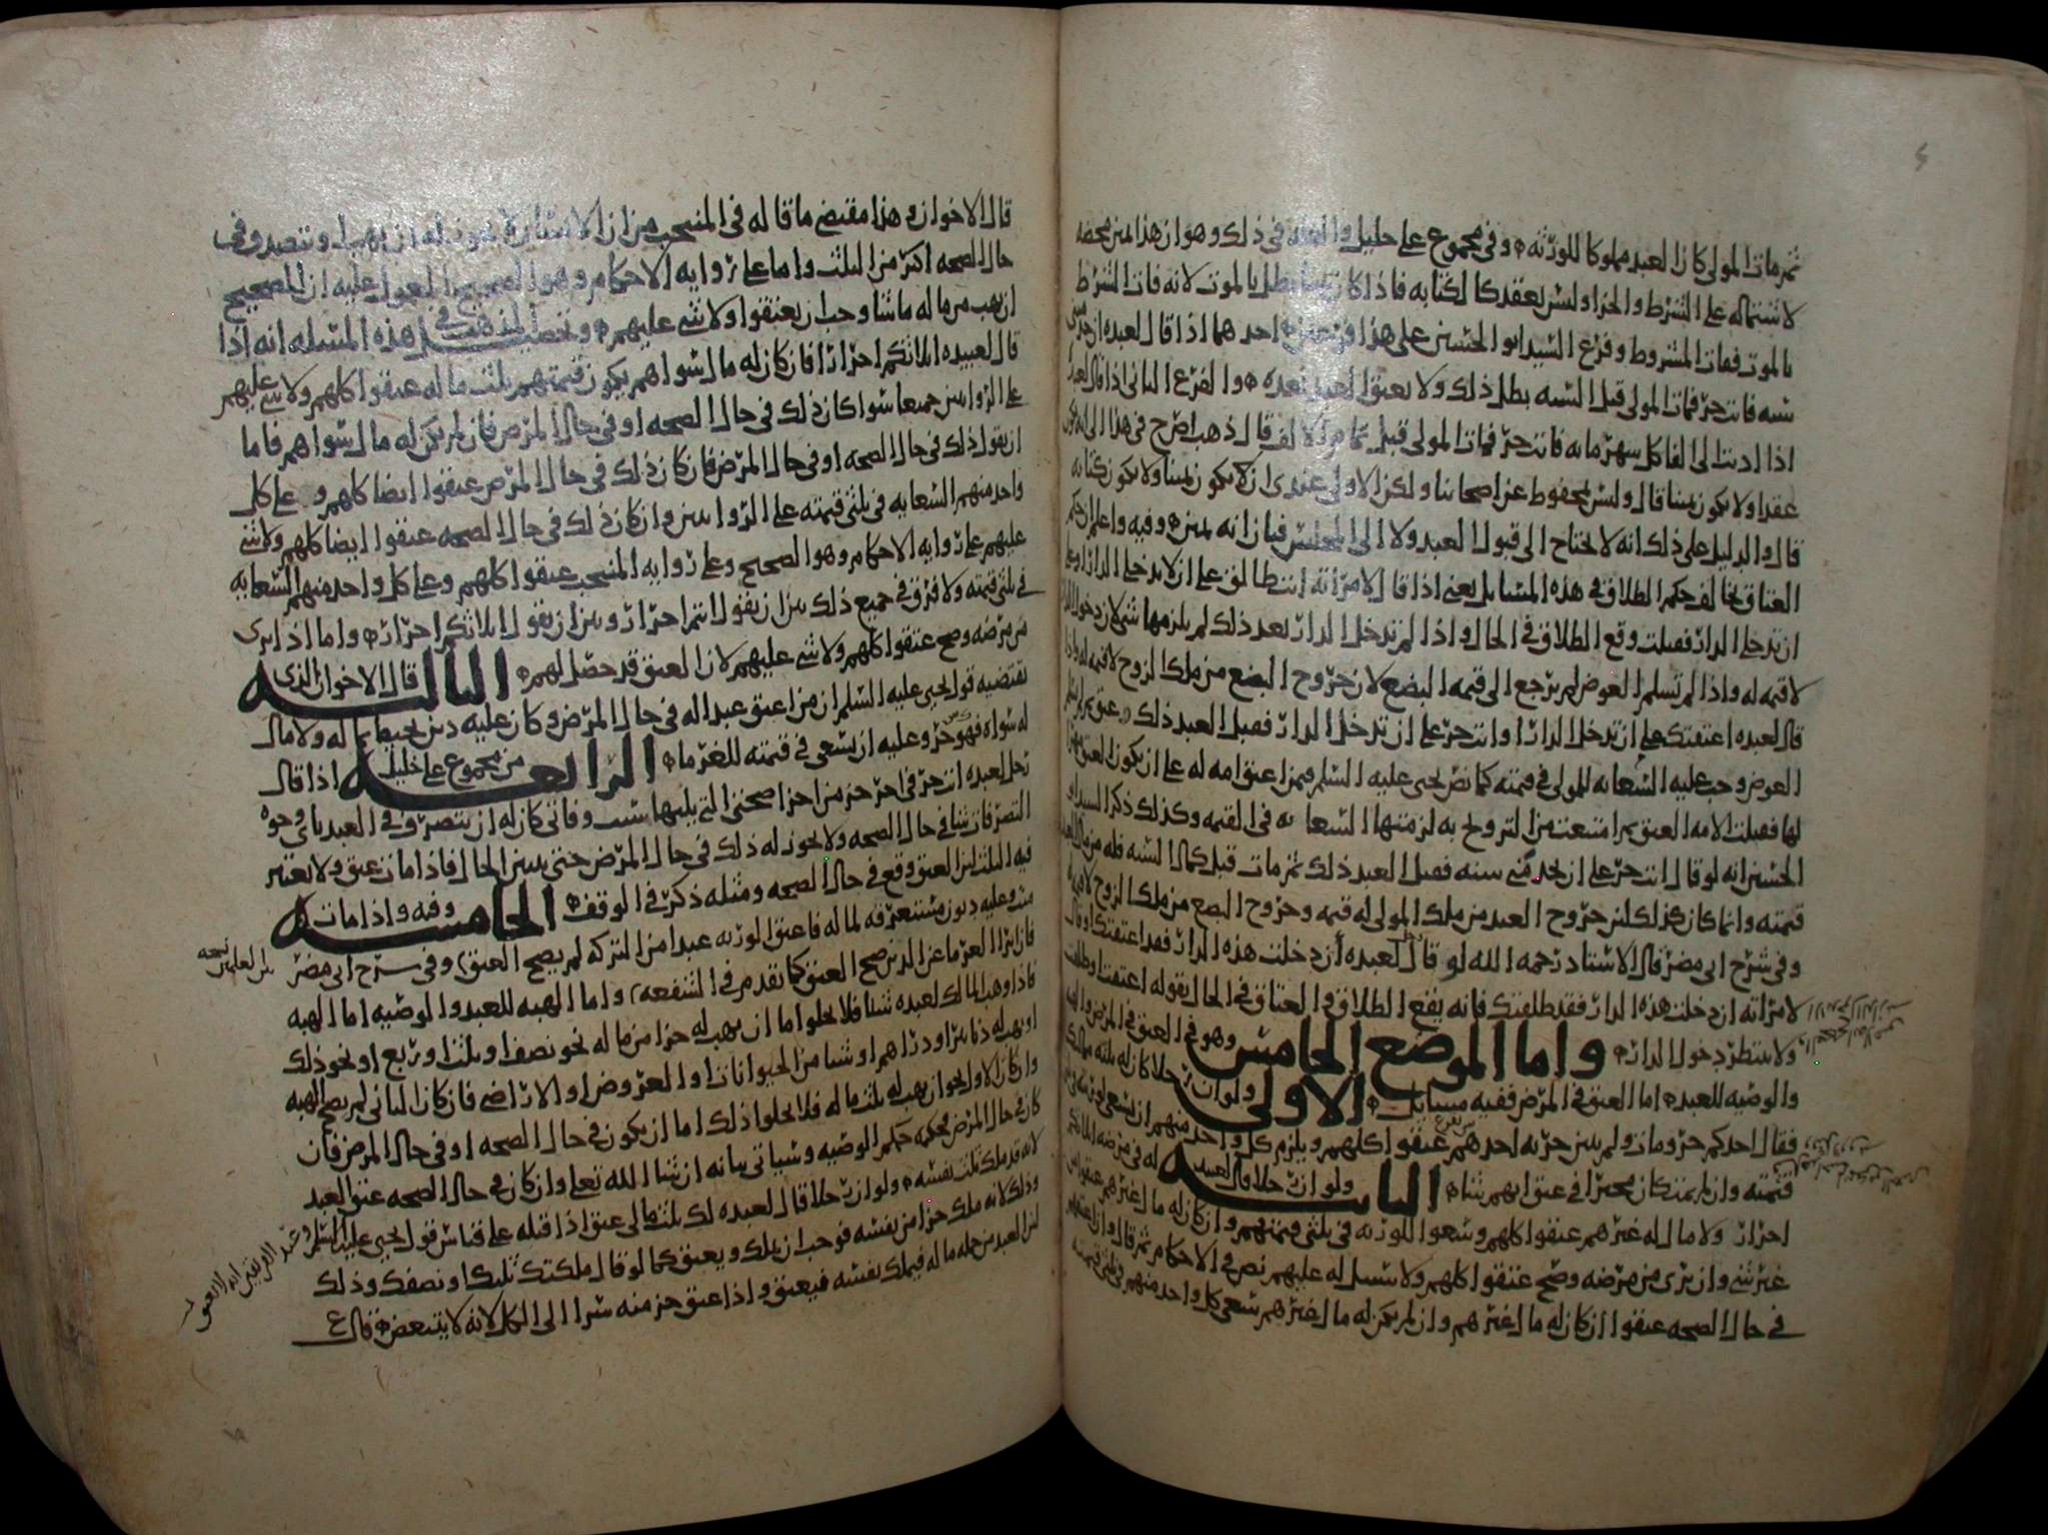 ثم مات المولى كان العبد مملوكا للورثه وفي مجموع علي خليل والعله في ذلك وهو ان هذا يمين محضه
لاشتماله على الشرط والجزا وليس بعقد كالكتابه فاذا كان يمينا بطل بالموت لانه فات الشرط
بالموت ففات المشروط وفرع السيد ابو الحسين على هذا فرعين احدهما اذا قال لعبده اخدمني
سنه فانت حر فمات المولى قبل السنه بطل ذلك ولا يعتق العبد بعده والفرع الثاني اذا قال لعبده
اذا اديت الي الفا كل شهر مايه فانت حر فمات المولى قبل تمام الالف قال ذهب اصرح في هذا الى انه يكون
عقدا ولا يكون يمينا قال وليس بمحفوظ عن اصحابنا ولكن الاولى عندي ان لا يكون يمينا ولا يكون كتابه
قال والدليل على ذلك انه لا يحتاج الى قبول العبد ولا الى المجلس فبان انه يمين وفيه واعلم ان حكم
العتاق يخالف حكم الطلاق في هذه المسايل يعني اذا قال لامراته انت طالق على ان لا تدخلي الدار او على
ان تدخلي الدار فقبلت وقع الطلاق في الحال واذا لم تدخل الدار بعد ذلك لم يلزمها شي لان دخول الدار
لا قيمه له واذا لم تسلم العوض لم يرجع الى قيمه البضع لان خروج البضع من ملك الزوج لا قيمه له واذا
قال لعبده اعتقتك على ان تدخل الدار او انت حر على ان تدخل الدار فقبل العبد ذلك عتق
العوض وجب عليه السعايه للمولى في قيمته كما نص يحيى عليه السلم فيمن اعتق امه له على ان يكون العتق مهرا
لها فقبلت الامه العتق ثم امتنعت من التزويج به لزمتها السعايه في القيمه وكذلك ذكر السيد ابو
الحسين انه لو قال انت حر على ان تخدمني سنه فقبل العبد ذلك ثم مات قبل كمال السنه فله من مال العبد
قيمته وانما كان كذلك لان خروج العبد من ملك المولى له قيمه وخروج البضع من ملك الزوج لا قيمه له
وفي شرح ابي مضر قال الاستاد رحمه الله لو قال لعبده ان دخلت هذه الدار فقد اعتقتك او قال
لامراته ان دخلت هذه الدار فقد طلقتك فانه يقع الطلاق والعتاق في الحال بقوله اعتقت وطلقت
ولا ينتظر دخول الدار واما الموضع الخامس وهو في العتق في المرض والهبه
والوصيه للعبد اما العتق في المرض ففيه مسايل الاولى ولو ان رجلا كان له ثلثه مماليك
فقال احدكم حر ومات ولم يبين حريه احدهم عتقوا كلهم ويلزم كل واحد منهم ان يسعى لورثته في
قيمته وان لم يمت كان مخيرا في عتق ايهم شا الثانيه ولو ان رجلا قال لعبيد له في مرضه
احرار ولا مال له غيرهم عتقوا كلهم وسعوا للورثه في ثلثي قيمتهم وان كان له مال غيرهم عتقوا من
غير شي وان برى من مرضه وصح عتقوا كلهم ولا سبيل له عليهم نص في الاحكام ثم قال وان اعتقهم
في حال الصحه عتقوا ان كان له مال غيرهم وان لم يكن له مال غيرهم سعى كل واحد منهم في ثلثي قيمته
قال الاخوان وهذا مقتضى ما قاله في المنتخب من ان الانسان لا يجوز له ان يهب او يتصدق في
حال الصحه اكثر من الثلث واما على روايه الاحكام وهو الصحيح المعول عليه ان للصحيح
ان يهب من ماله ما شا وجب ان يعتقوا ولا شي عليهم وتحصيل المذهب في هذه المسله انه اذا
قال لعبيده الثلاثه انتم احرارا فان كان له مال سواهم يكون قيمتهم بثلث ماله عتقوا كلهم ولا شي عليهم
على الروايتين جميعا سوا كان ذلك في حال الصحه او في حال المرض فان لم يكن له مال سواهم فاما
ان يقول ذلك في حال الصحه او في حال المرض فان كان ذلك في حال المرض عتقوا ايضا كلهم وعلى كل
واحد منهم السعايه في ثلثي قيمته على الروايتين وان كان ذلك في حال الصحه عتقوا ايضا كلهم ولا شي
عليهم على روايه الاحكام وهو الصحيح وعلى روايه المنتخب عتقوا كلهم وعلى كل واحد منهم السعايه
في ثلثي قيمته ولا فرق في جميع ذلك بين ان يقول انتم احرار وبين ان يقول ثلاثتكم احرار واما اذا برى
من مرضه وصح عتقوا كلهم ولا شي عليهم لان العتق قد حصل لهم الثالثه قال الاخوان الذي
يقتضيه قول يحيى عليه السلم ان من اعتق عبدا له في حال المرض وكان عليه دين يحيط بماله ولا مال
له سواه فهو حر وعليه ان يسعى في قيمته للغرما الرابعه من مجموع علي خليل اذا قال
رجل لعبده انت حر في اخر جز من اجزا صحتي التي يليها سبب وفاتي كان له ان يتصرف في العبد باي وجوه
التصرفات شا في حال الصحه ولا يجوز له ذلك في حال المرض حتى يتبين الحال فاذا مات عتق ولا يعتبر
فيه الثلث لان العتق وقع في حال الصحه ومثله ذكر في الوقف الخامسه وفيه واذا مات
ميت وعليه ديون مستغرقه لماله فاعتق الورثه عبدا من التركه لم يصح العتق وفي شرح ابي مضر
فان ابرا الغرما عن الدين صح العتق كما تقدم في الشفعه واما الهبه للعبد والوصيه اما الهبه
فاذا وهب المالك لعبده شيئا فلا يخلوا اما ان يهب له جزا من ماله نحو نصف او ثلث او ربع او نحو ذلك
او يهب له دنانير او دراهم او شيا من الحيوانات او العروض او الاراضي فان كان الثاني لم يصح الهبه
وان كان الاول نحو ان يهب له ثلث ماله فلا يخلوا ذلك اما ان يكون في حال الصحه او في حال المرض فان
كان في حال المرض فحكمه حكم الوصيه وسياتي بيانه ان شا الله تعلى وان كان في حال الصحه عتق العبد
لانه قد ملك ثلث نفسه ولو ان رجلا قال لعبده لك ثلث مالي عتق اذا قبله على قياس قول يحيى عليه السلم
وذلك لانه ملك جزا من نفسه فوجب ان يملك ويعتق كما لو قال ملكتك ثلثك او نصفك وذلك
لان العبد من جمله ماله فيملك نفسه فيعتق واذا عتق جز منه سرا الى الكل لانه لا يتبعض قال ع